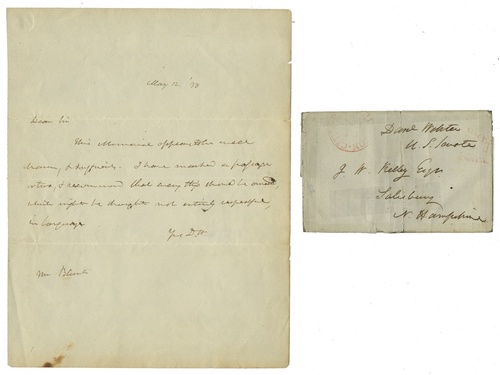 May 12 '38
Dear Sir
This Memorial appears to be well
drawn, & sufficient. I have marked a passage
or two, & recommend that every thing should be omitted
which might be thought not entirely respectful,
in language.
Yrs D. W.
Mr Blunt
Danl Webster
U. S. Senate
J. W. Kelly Esqr
Salisbury
N. Hampshire